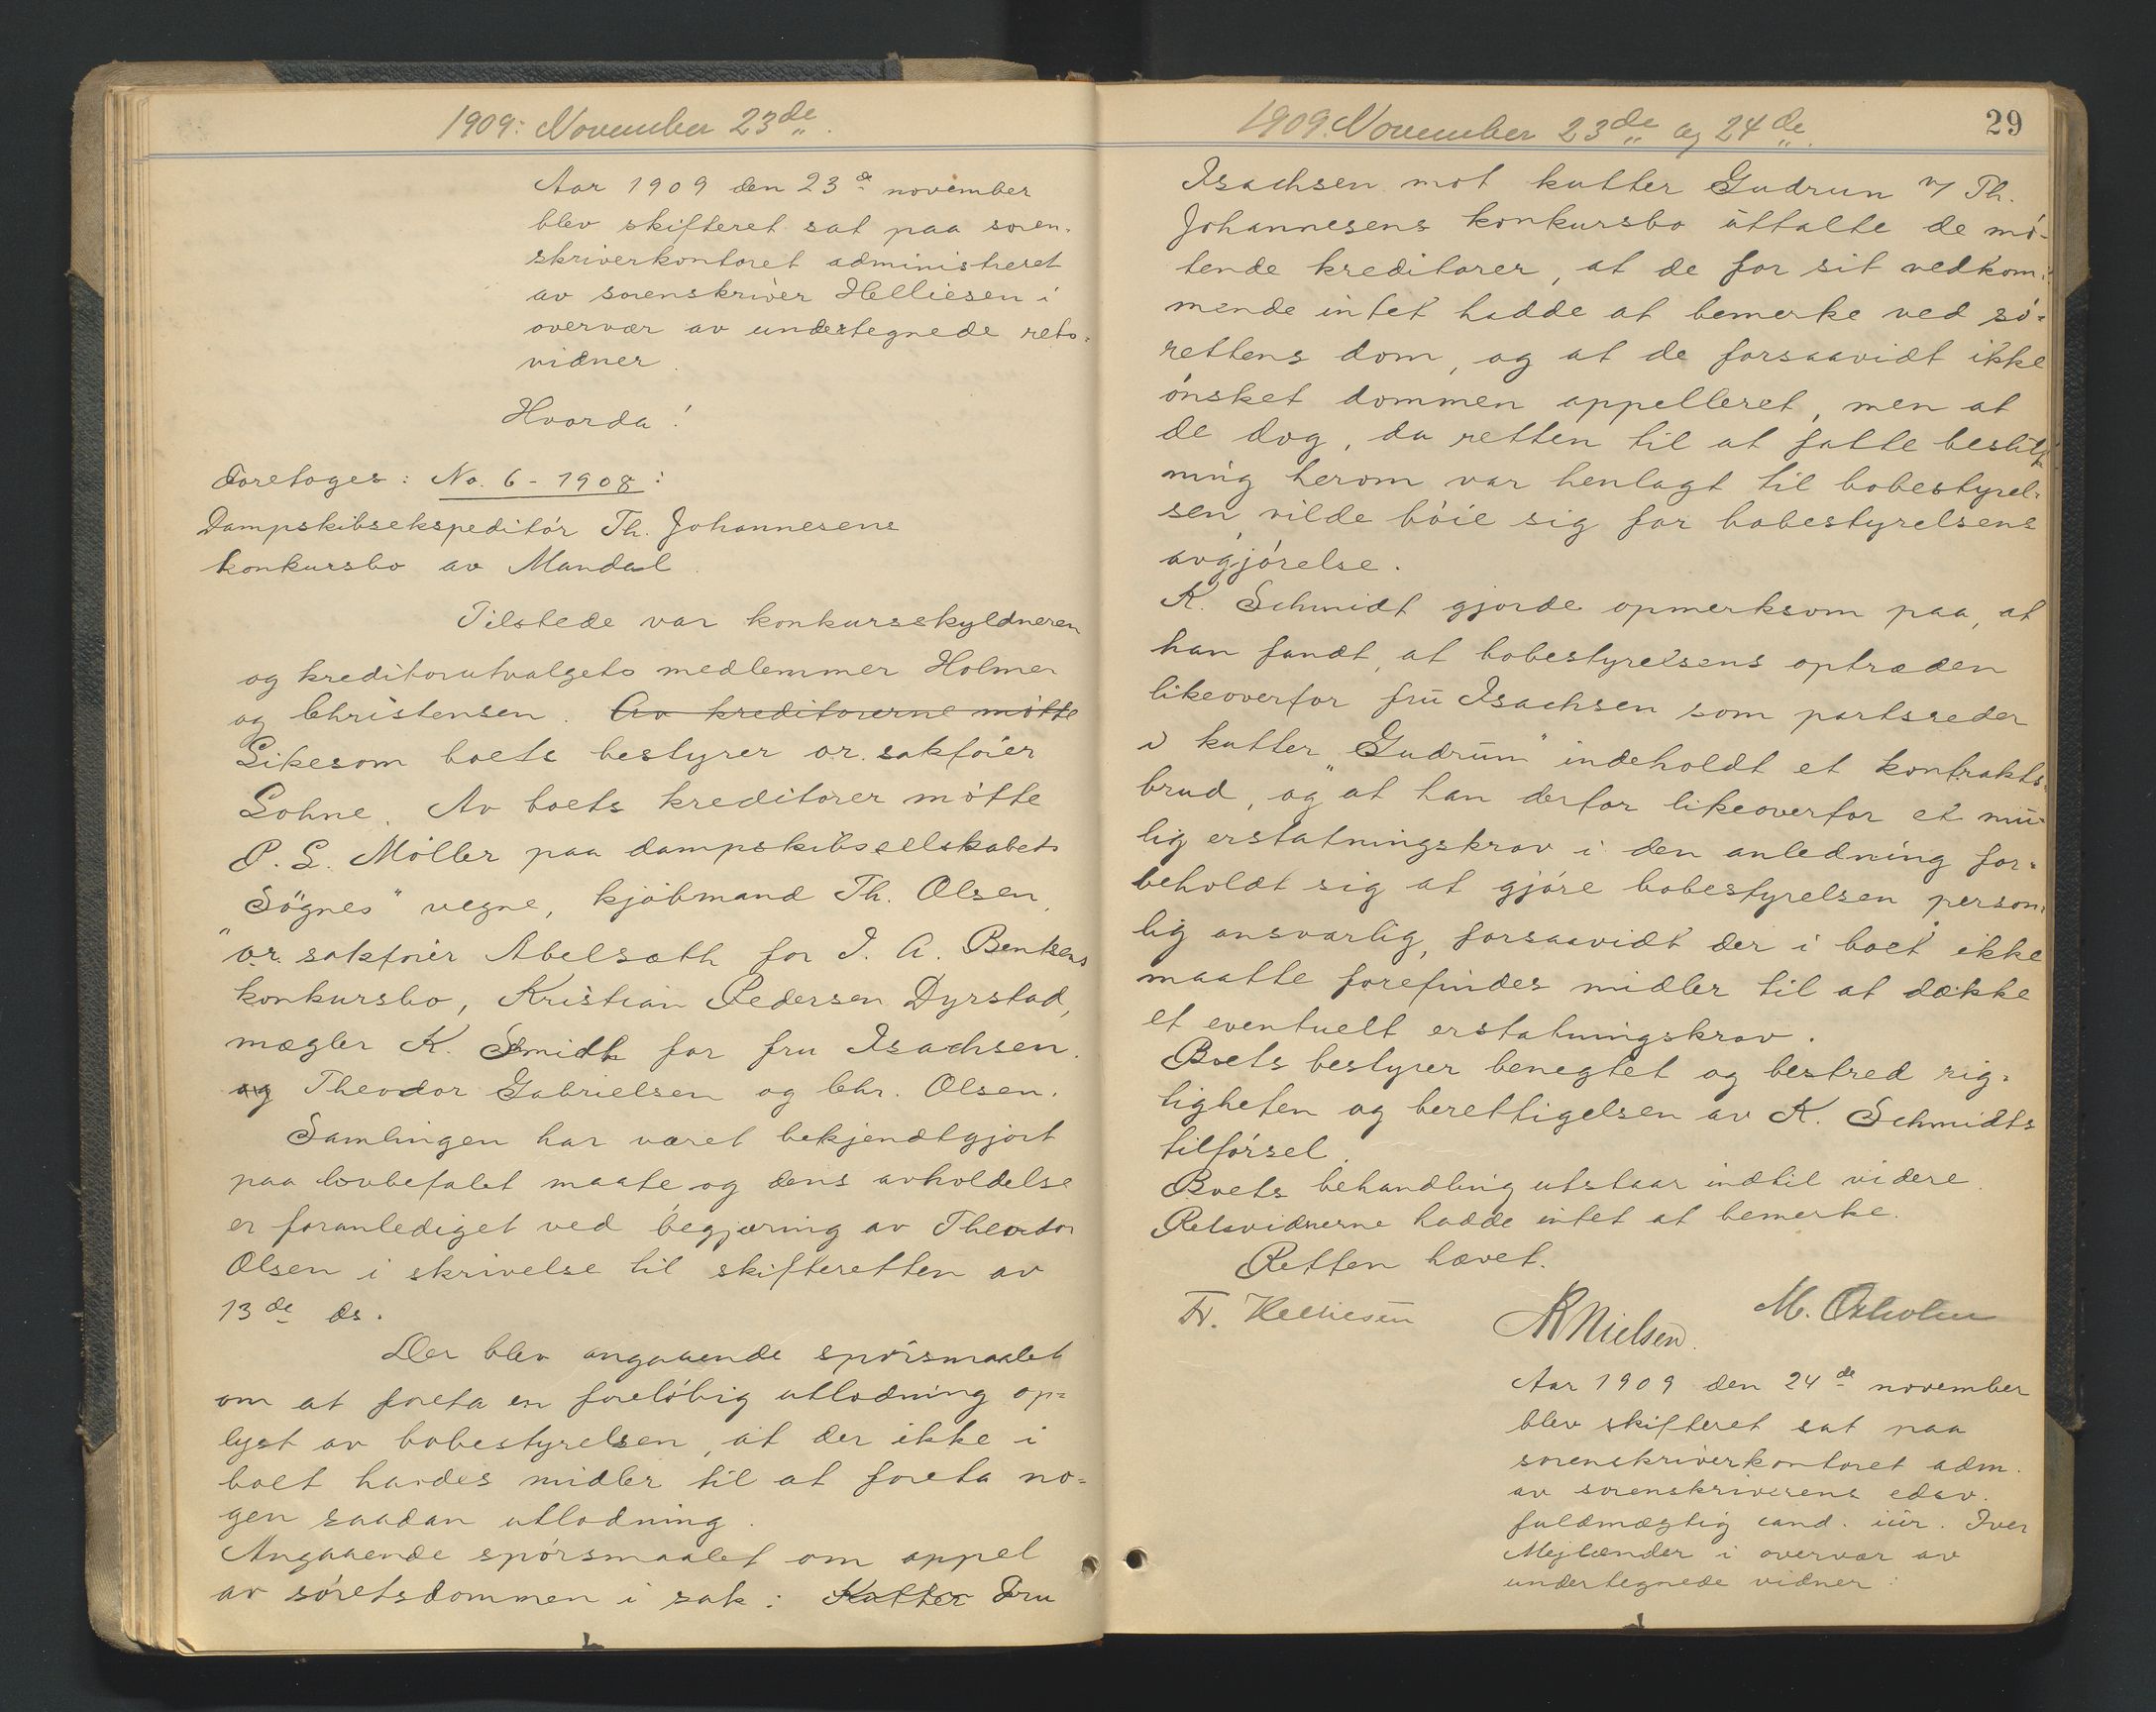 1909: November 23de.
Aar 1909 den 23de november
blev skifteret sat paa soren-
skriverkontoret administreret
av sorenskriver Helliesen i
overvær av undertegnede rets-
vidner.
Hvorda!
Foretoges: No. 6 - 1908:
Dampskibsekspeditör Th. Johannesens
konkursbo av Mandal.
Tilstede var konkursskyldneren
og kreditorutvalgets medlemmer Holmer
og Christensen. Av kreditorerne mötte
Likesom boets bestyrer or. sakförer
Lohne. Av boets kreditorer mötte
P. L. Möller paa dampskibsselskabets
"Sögnes" vegne, kjöbmand Th. Olsen,
or. sakförer Abelsæth for J. A. Bentsens
konkursbo, Kristian Pedersen Dyrstad,
mægler K. Smidt for fru Isachsen.
og Theodor Gabrielsen og Chr. Olsen.
Samlingen har været bekjendtgjort
paa lovbefalet maate og dens avholdelse
er foranlediget ved begjæring av Theodor
Olsen i skrivelse til skifteretten av
13de ds.
Der blev angaaende spörsmaalet
om at foreta en forelöbig utlodning op-
lyst av bobestyrelsen, at der ikke i
boet havdes midler til at foreta no-
gen saadan utlodning.
Angaaende spörsmaalet om appel
av söretsdommen i sak: Kutter Fru
1909. November 23de og 24de.
29
Isachsen mot kutter Gudrun v/ Th.
Johannesens konkursbo uttalte de mö-
tende kreditorer, at de for sit vedkom-
mende intet hadde at bemerke ved sö-
rettens dom, og at de forsaavidt ikke
önsket dommen appelleret, men at
de dog, da retten til at fatte beslut-
ning herom var henlagt til bobestyrel-
sen vilde böie sig for bobestyrelsens
avgjörelse.
K. Schmidt gjorde opmerksom paa, at
han fandt, at bobestyrelsens optræden
likeoverfor fru Isachsen som partsreder
i kutter "Gudrun" indeholdt et kontrakts-
brud, og at han derfor likeoverfor et mu-
lig erstatningskrav i den anledning for-
beholdt sig at gjöre bobestyrelsen person-
lig ansvarlig, forsaavidt der i boet ikke
maatte forefindes midler til at dække
et eventuelt erstatningskrav.
Boets bestyrer benegtet og bestred rig-
tigheten og berettigelsen av K. Schmidts
tilförsel.
Boets behandling utstaar indtil videre.
Retsvidnerne hadde intet at bemerke.
Retten hævet.
Fr. Helliesen
A Nielsen.
M. Oxholm
Aar 1909 den 24de november
blev skifteret sat paa
sorenskriverkontoret adm.
av sorenskriverens edsv.
fuldmægtig cand. jur. Iver
Mejlænder i overvær av
undertegnede vidner: